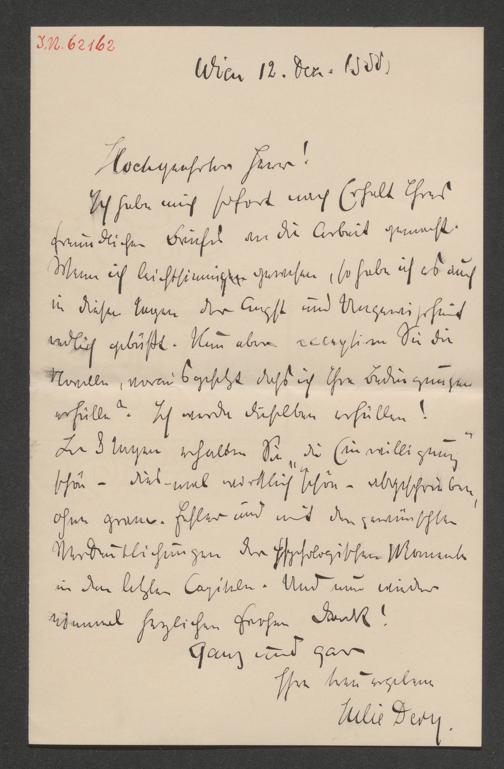 I.N. 62162
Wien 12. Dez. 1888,
Hochgeehrter Herr!
Ich habe mich sofort nach Erhalt Ihres
freundlichen Briefes an die Arbeit gemacht.
Wenn ich leichtsinnig gewesen, so habe ich es auch
in diesen Tagen der Angst und Ungewissheit
redlich gebüßt. Nun aber acceptiren Sie die
Novelle, vorausgesetzt daß ich Ihre Bedingungen
erfülle? Ich werde dieselben erfüllen!
In 3 Tagen erhalten Sie „die Einwilligung"
schön - dies-mal wirklich schön - abgeschrieben,
ohne gram. Fehler und mit den gewünschten
Verdeutlichungen der psychologischen Momente
in den letzten Capiteln. Und nun wieder
einmal herzlichen frohen Dank!
Ganz und gar
Ihre treu ergebene
Julie Dery.